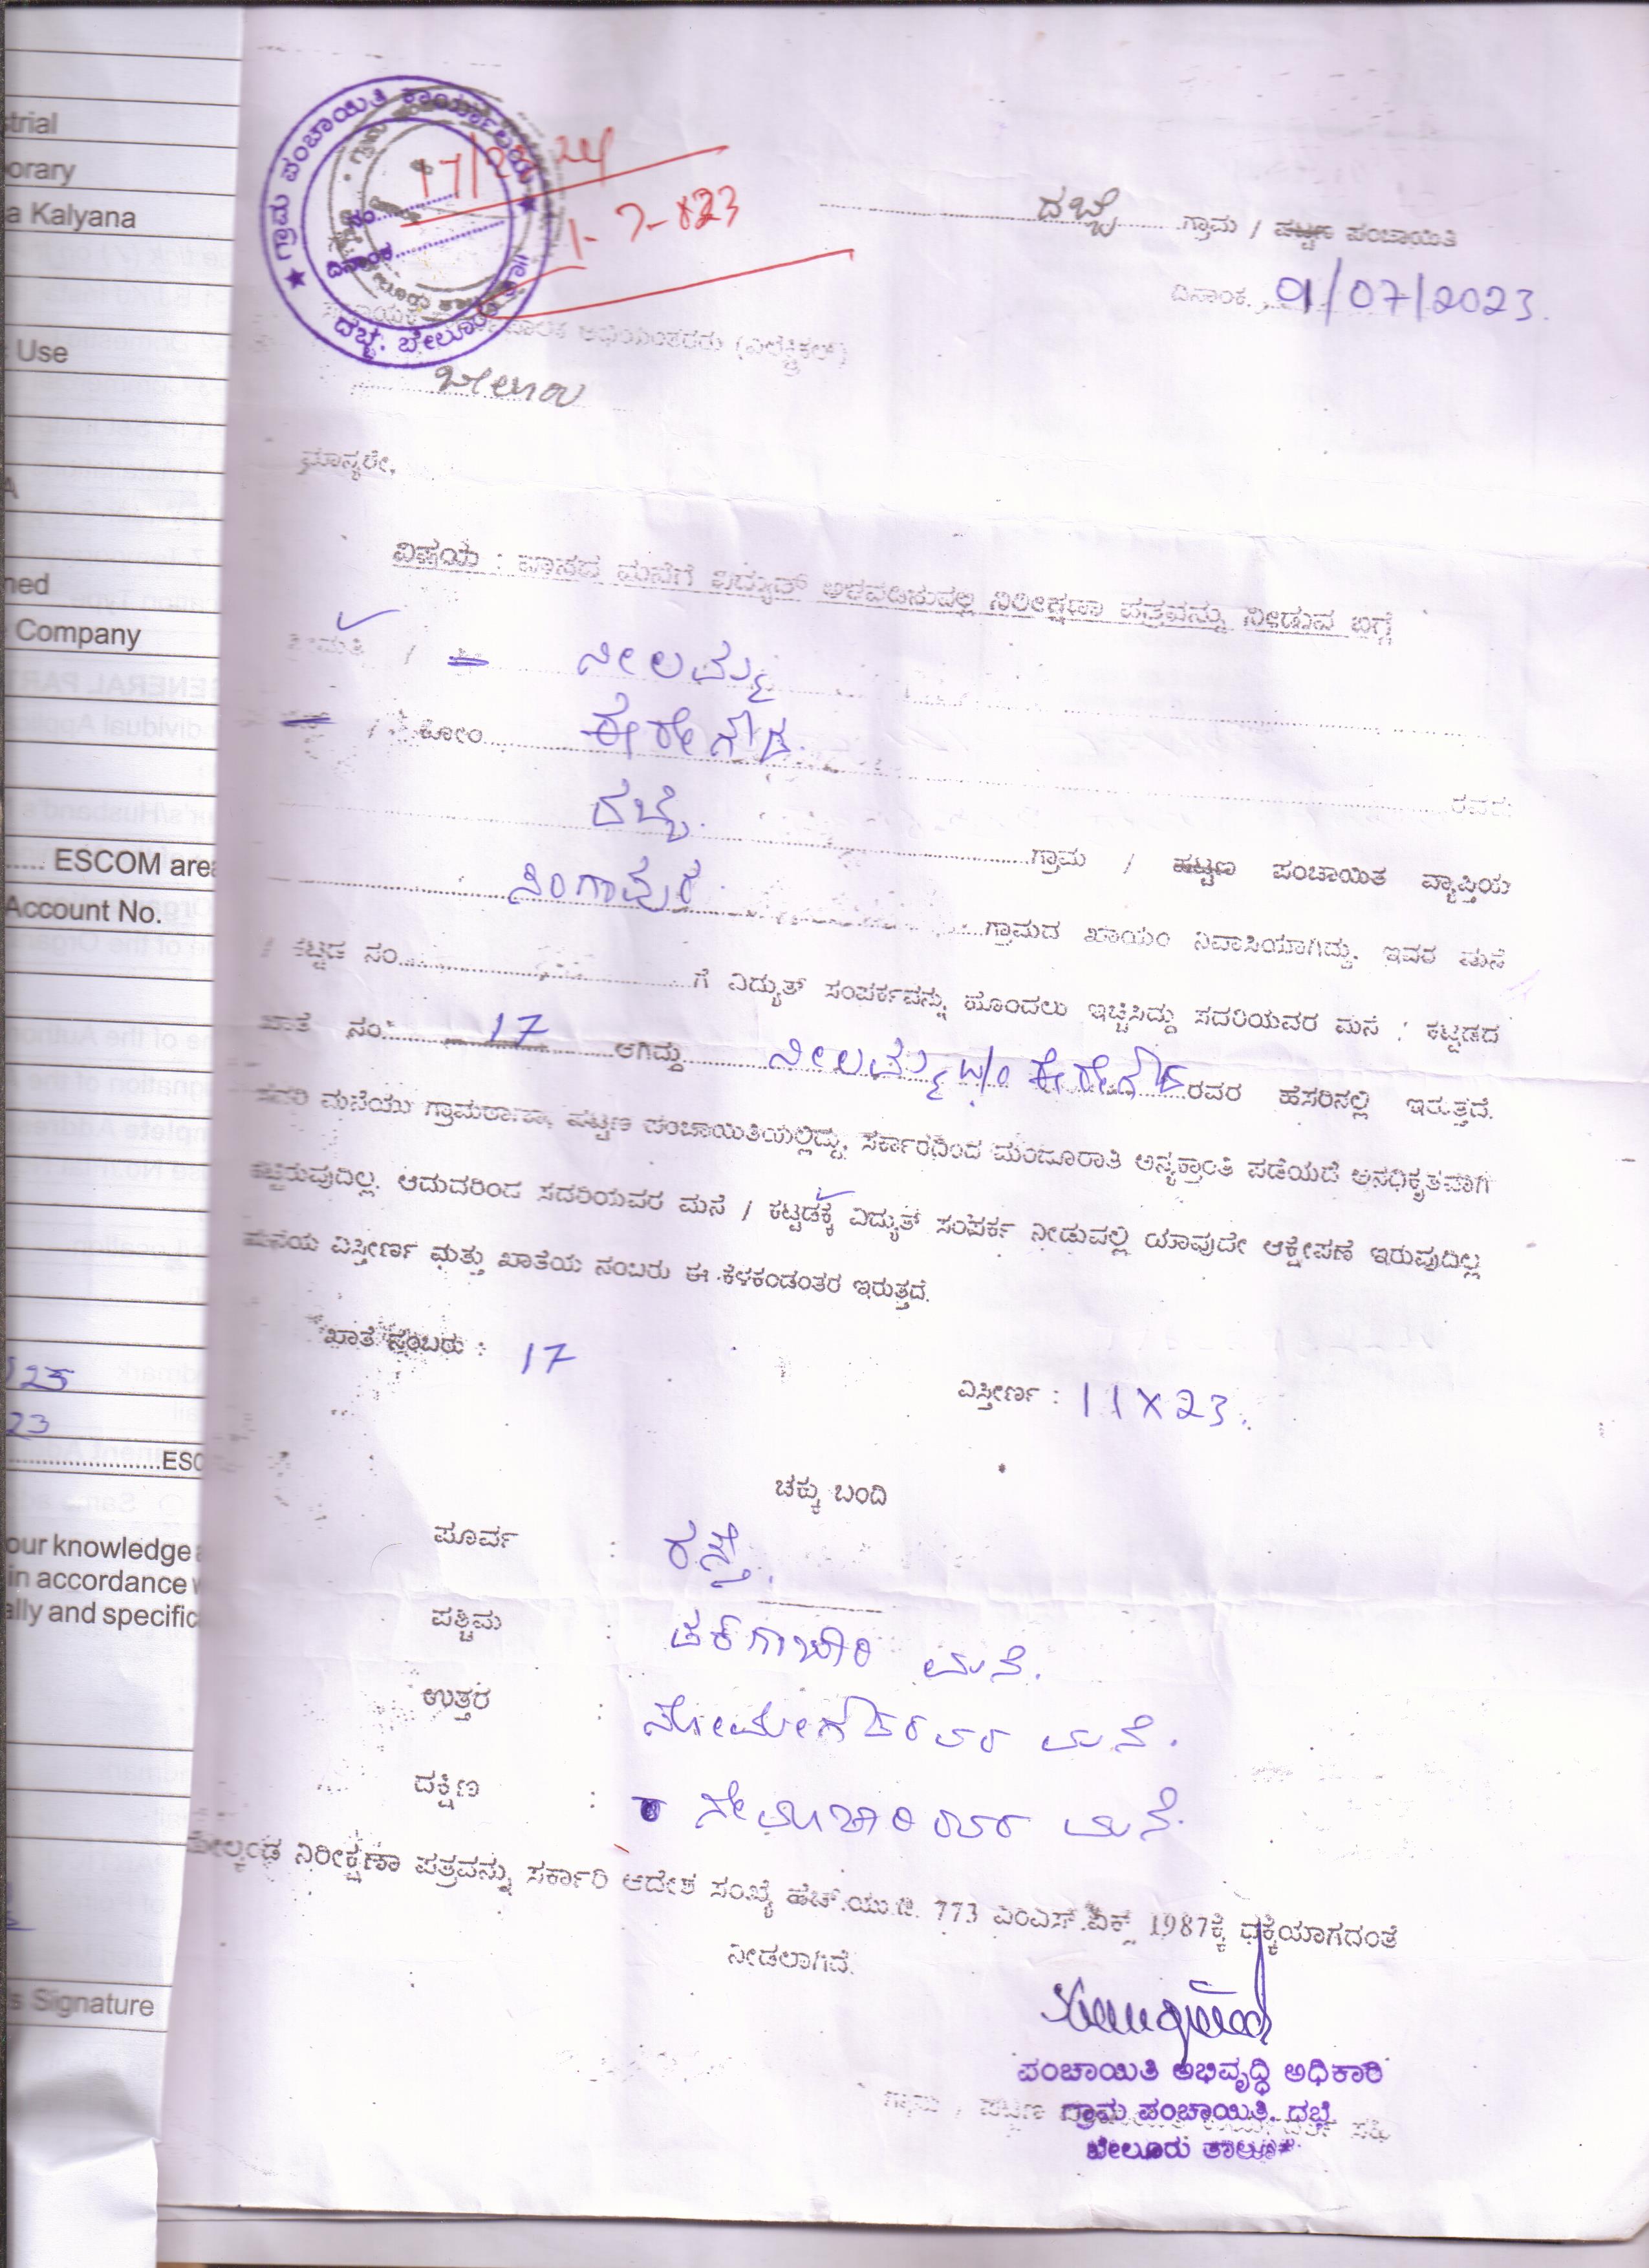 ಗ್ರಾಮ ಪಂಚಾಯಿತಿ ಕಾರ್ಯಾಲಯ
ನಂ. 17/23-24
ದಿನಾಂಕ 1-7-2023
ದಬ್ಬೆ, ಬೇಲೂರು
ದಬ್ಬೆ ಗ್ರಾಮ / ಪಟ್ಟಣ ಪಂಚಾಯಿತಿ
ದಿನಾಂಕ 01/07/2023.
ಅಭಿಯಂತರರು (ಎಲೆಕ್ಟ್ರಿಕಲ್)
ಬೇಲೂರು
ಮಾನ್ಯರೇ,
ವಿಷಯ : ವಾಸದ ಮನೆಗೆ ವಿದ್ಯುತ್ ಅಳವಡಿಸುವಲ್ಲಿ ನಿರೀಕ್ಷಣಾ ಪತ್ರವನ್ನು ನೀಡುವ ಬಗ್ಗೆ
ಶ್ರೀಮತಿ / ನೀಲಮ್ಮ
/ ಕೋಂ ಈರೇಗೌಡ. ರವರು
ದಬ್ಬೆ. ಗ್ರಾಮ / ಪಟ್ಟಣ ಪಂಚಾಯಿತ ವ್ಯಾಪ್ತಿಯ
ಸಿಂಗಾಪುರ. ಗ್ರಾಮದ ಖಾಯಂ ನಿವಾಸಿಯಾಗಿದ್ದು, ಇವರ ಮನೆ
/ ಕಟ್ಟಡ ನಂ. ಗೆ ವಿದ್ಯುತ್ ಸಂಪರ್ಕವನ್ನು ಹೊಂದಲು ಇಚ್ಚಿಸಿದ್ದು ಸದರಿಯವರ ಮನೆ / ಕಟ್ಟಡದ
ಖಾತೆ ನಂ. 17 ಆಗಿದ್ದು ನೀಲಮ್ಮ w/o ಈರೇಗೌಡ ರವರ ಹೆಸರಿನಲ್ಲಿ ಇರುತ್ತದೆ.
ಸದರಿ ಮನೆಯು ಗ್ರಾಮಠಾಣಾ, ಪಟ್ಟಣ ಪಂಚಾಯಿತಿಯಲ್ಲಿದ್ದು, ಸರ್ಕಾರದಿಂದ ಮಂಜೂರಾತಿ ಅನ್ಯಕ್ರಾಂತಿ ಪಡೆಯದೆ ಅನಧಿಕೃತವಾಗಿ
ಕಟ್ಟಿರುವುದಿಲ್ಲ. ಆದುದರಿಂದ ಸದರಿಯವರ ಮನೆ / ಕಟ್ಟಡಕ್ಕೆ ವಿದ್ಯುತ್ ಸಂಪರ್ಕ ನೀಡುವಲ್ಲಿ ಯಾವುದೇ ಆಕ್ಷೇಪಣೆ ಇರುವುದಿಲ್ಲ
ಮನೆಯ ವಿಸ್ತೀರ್ಣ ಮತ್ತು ಖಾತೆಯ ನಂಬರು ಈ ಕೆಳಕಂಡಂತರ ಇರುತ್ತದೆ.
ಖಾತೆ ನಂಬರು : 17
ವಿಸ್ತೀರ್ಣ : 11X23.
ಚಕ್ಕುಬಂದಿ
ಪೂರ್ವ : ರಸ್ತೆ.
ಪಶ್ಚಿಮ : ಮನೆ.
ಉತ್ತರ : ಸೋಮೇಗೌಡರವರ ಮನೆ.
ದಕ್ಷಿಣ : ಮನೆ.
ಮೇಲ್ಕಂಡ ನಿರೀಕ್ಷಣಾ ಪತ್ರವನ್ನು ಸರ್ಕಾರಿ ಆದೇಶ ಸಂಖ್ಯೆ ಹೆಚ್.ಯು.ಡಿ. 773 ಎಂಎಸ್.ವಿಕ್ಸ್ 1987ಕ್ಕೆ ಧಕ್ಕೆಯಾಗದಂತೆ
ನೀಡಲಾಗಿದೆ.
ಪಂಚಾಯಿತಿ ಅಭಿವೃದ್ಧಿ ಅಧಿಕಾರಿ
ಗ್ರಾಮ ಪಂಚಾಯಿತಿ, ದಬ್ಬೆ
ಬೇಲೂರು ತಾಲೂಕು
ಗ್ರಾಮ / ಪಟ್ಟಣ
a Kalyana
Use
Company
ESCOM area
Account No.
23
our knowledge
in accordance
ally and specific
s Signature